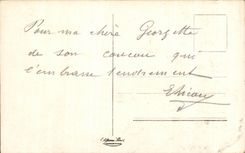 Pour ma chère Georgette
de son coucou qui
l'embrasse tendrement